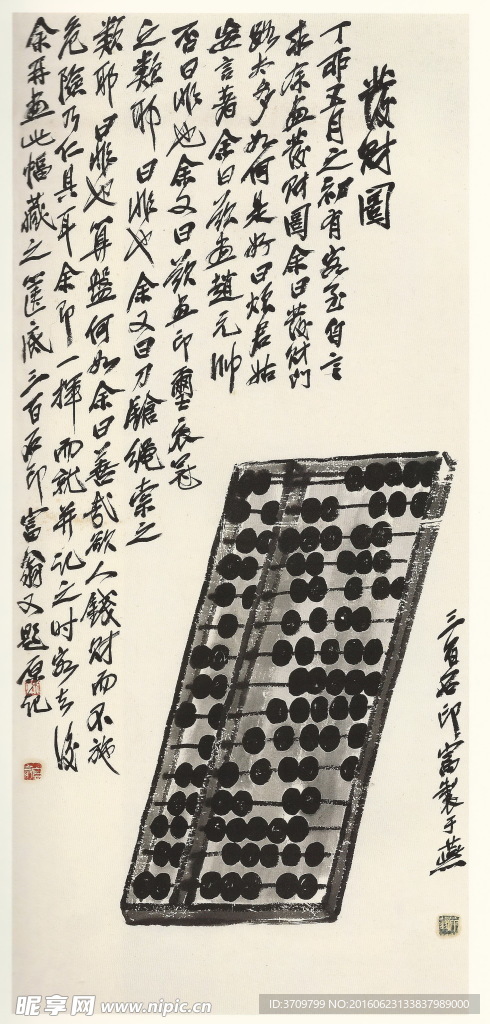 發財圖
丁卯五月之初有客至自言
求余畫發財圖余曰發財門
路太多如何是好曰煩君姑
妄言著余曰欲畫趙元帥
否曰非也余又曰欲畫印璽衣冠
之類耶曰非也余又曰刀鎗繩索之
類耶曰非也算盤何如余曰善哉欲人錢財而不施
危險乃仁具耳余即一揮而就并記之時客去後
余再畫此幅藏之篋底三百石印富翁又題原記
三百石印富翁製于燕
昵享网 www.nipic.cn
ID:3709799 NO:20160623133837989000